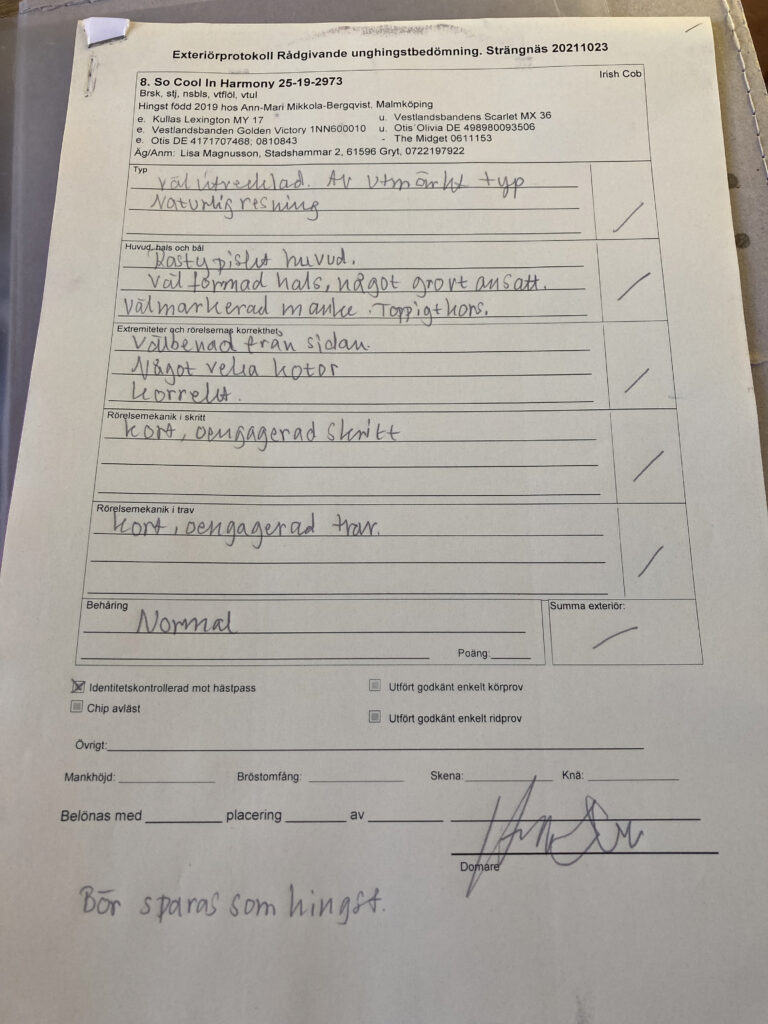 Exteriörprotokoll Rådgivande unghingstbedömning. Strängnäs 20211023
8. So Cool In Harmony 25-19-2973
Irish Cob
Brsk, stj, nsbls, vtflöl, vtul
Hingst född 2019 hos Ann-Mari Mikkola-Bergqvist, Malmköping
e. Kullas Lexington MY 17 u. Vestlandsbandens Scarlet MX 36
e. Vestlandsbanden Golden Victory 1NN600010 u. Otis Olivia DE 498980093506
e. Otis DE 4171707468; 0810843 - The Midget 0611153
Äg/Anm: Lisa Magnusson, Stadshammar 2, 61596 Gryt, 0722197922
Typ
Välutvecklad. Av utmärkt typ
Naturlig resning
Huvud, hals och bål
Rastypiskt huvud.
Väl formad hals, något grovt ansatt.
Välmarkerad manke. Toppigt kors.
Extremiteter och rörelsernas korrekthet
Välbenad från sidan.
Något veka kotor
Korrekt.
Rörelsemekanik i skritt
Kort, oengagerad skritt
Rörelsemekanik i trav
Kort, oengagerad trav.
Behåring
Normal
Poäng:
Summa exteriör:
Identitetskontrollerad mot hästpass
Utfört godkänt enkelt körprov
Chip avläst
Utfört godkänt enkelt ridprov
Övrigt:
Mankhöjd: Bröstomfång: Skena: Knä:
Belönas med placering av
Domare
Bör sparas som hingst.